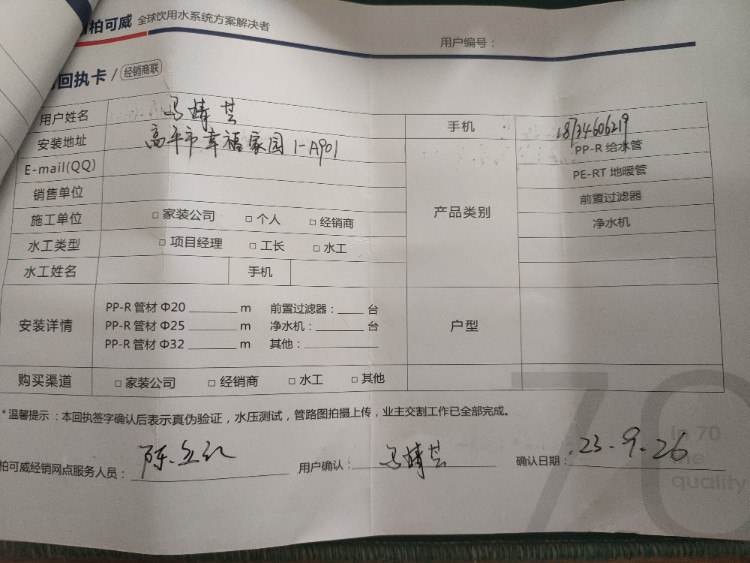 柏可威 全球饮用水系统方案解决者
用户编号：
回执卡 / 经销商联
用户姓名 马婧芸 手机 18734606219
安装地址 高平市幸福家园1-A901 产品类别 PP-R 给水管
E-mail(QQ) PE-RT 地暖管
销售单位 前置过滤器
施工单位 □ 家装公司 □ 个人 □ 经销商 净水机
水工类型 □ 项目经理 □ 工长 □ 水工
水工姓名 手机
安装详情 PP-R 管材 Φ20 ______ m 前置过滤器：____ 台 户型
PP-R 管材 Φ25 ______ m 净水机：____ 台
PP-R 管材 Φ32 ______ m 其他：______
购买渠道 □ 家装公司 □ 经销商 □ 水工 □ 其他
*温馨提示：本回执签字确认后表示真伪验证，水压测试，管路图拍摄上传，业主交割工作已全部完成。
柏可威经销网点服务人员： 用户确认：马婧芸 确认日期：23.9.26
70
in 70
the
quality